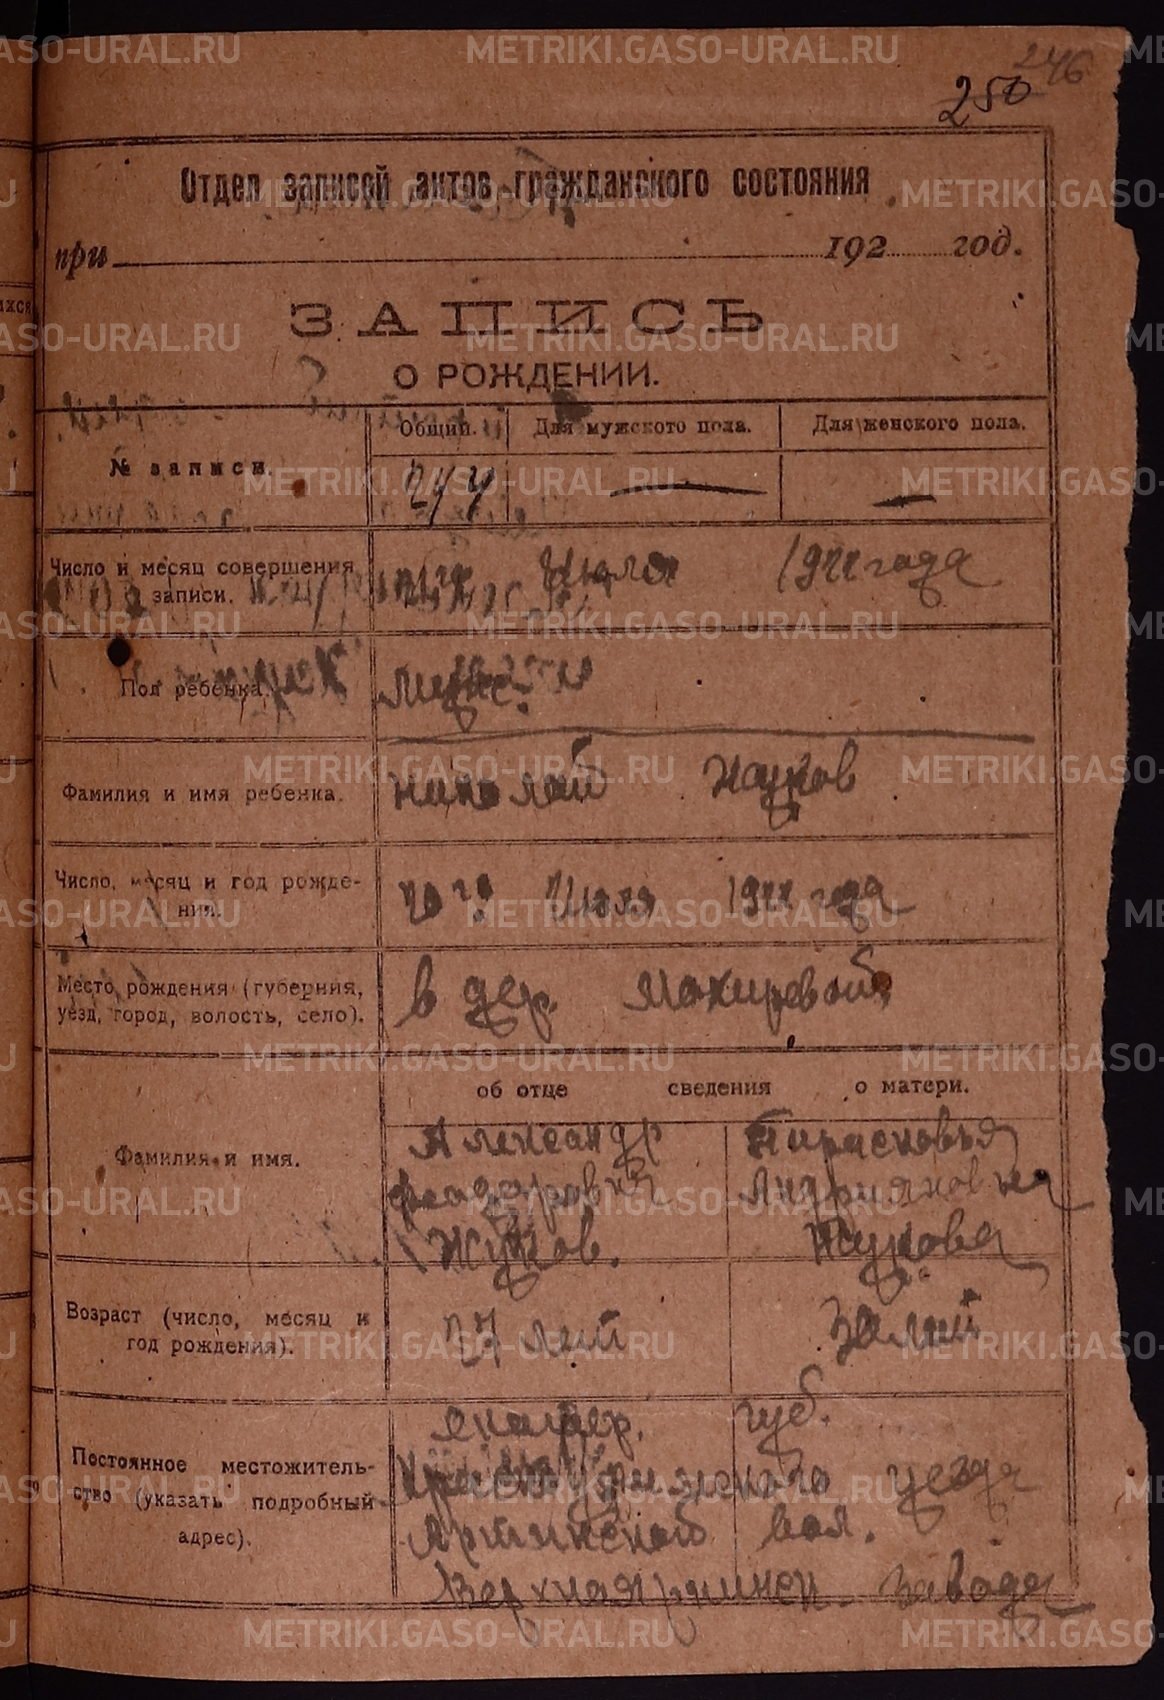 246
250
Отдел записей актов гражданского состояния
при 192 год.
ЗАПИСЬ
О РОЖДЕНИИ.
№ записи. Общий. Для мужского пола. Для женского пола.
Число и месяц совершения записи. Июля 1922 года
Пол ребенка.
Фамилия и имя ребенка. Николай Жуков
Число, месяц и год рожде-
ния. 20 го Июля 1922 года
Место рождения (губерния,
уезд, город, волость, село). в дер.
об отце сведения о матери.
Фамилия и имя. Александр
Жуков. Жукова
Возраст (число, месяц и
год рождения). 27 лет 30 лет
Постоянное местожитель-
ство (указать подробный
адрес). Екатер. губ.
Красноуфимского уезда
Артинской вол.
завода
METRIKI.GASO-URAL.RU